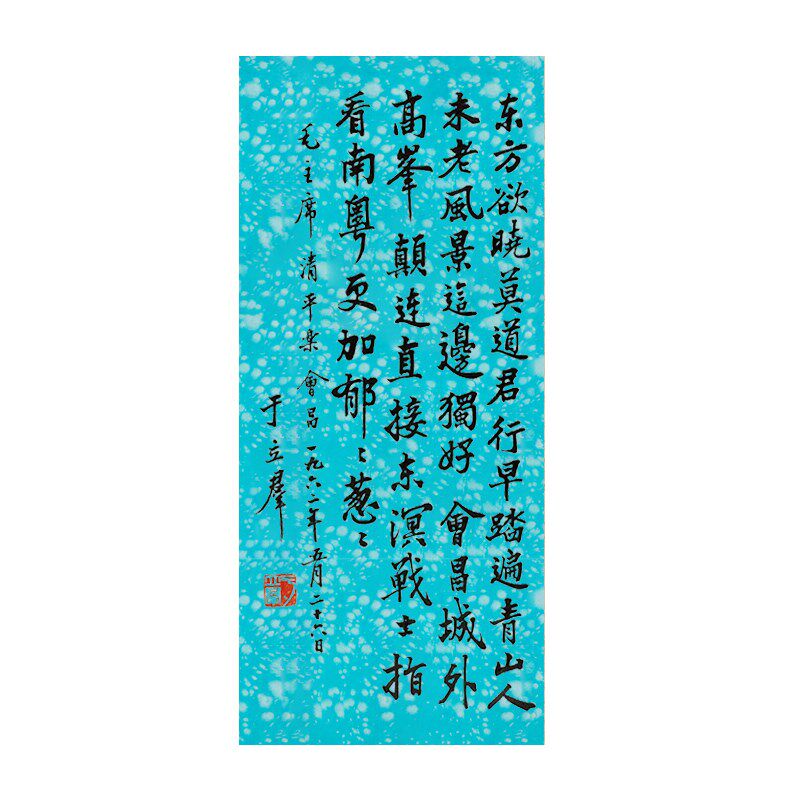 东方欲晓莫道君行早踏遍青山人
未老風景這邊獨好會昌城外
高峯顛连直接东溟戰士指
看南粤更加郁〻葱〻
毛主席清平楽會昌一九六二年五月二十六日
于立羣